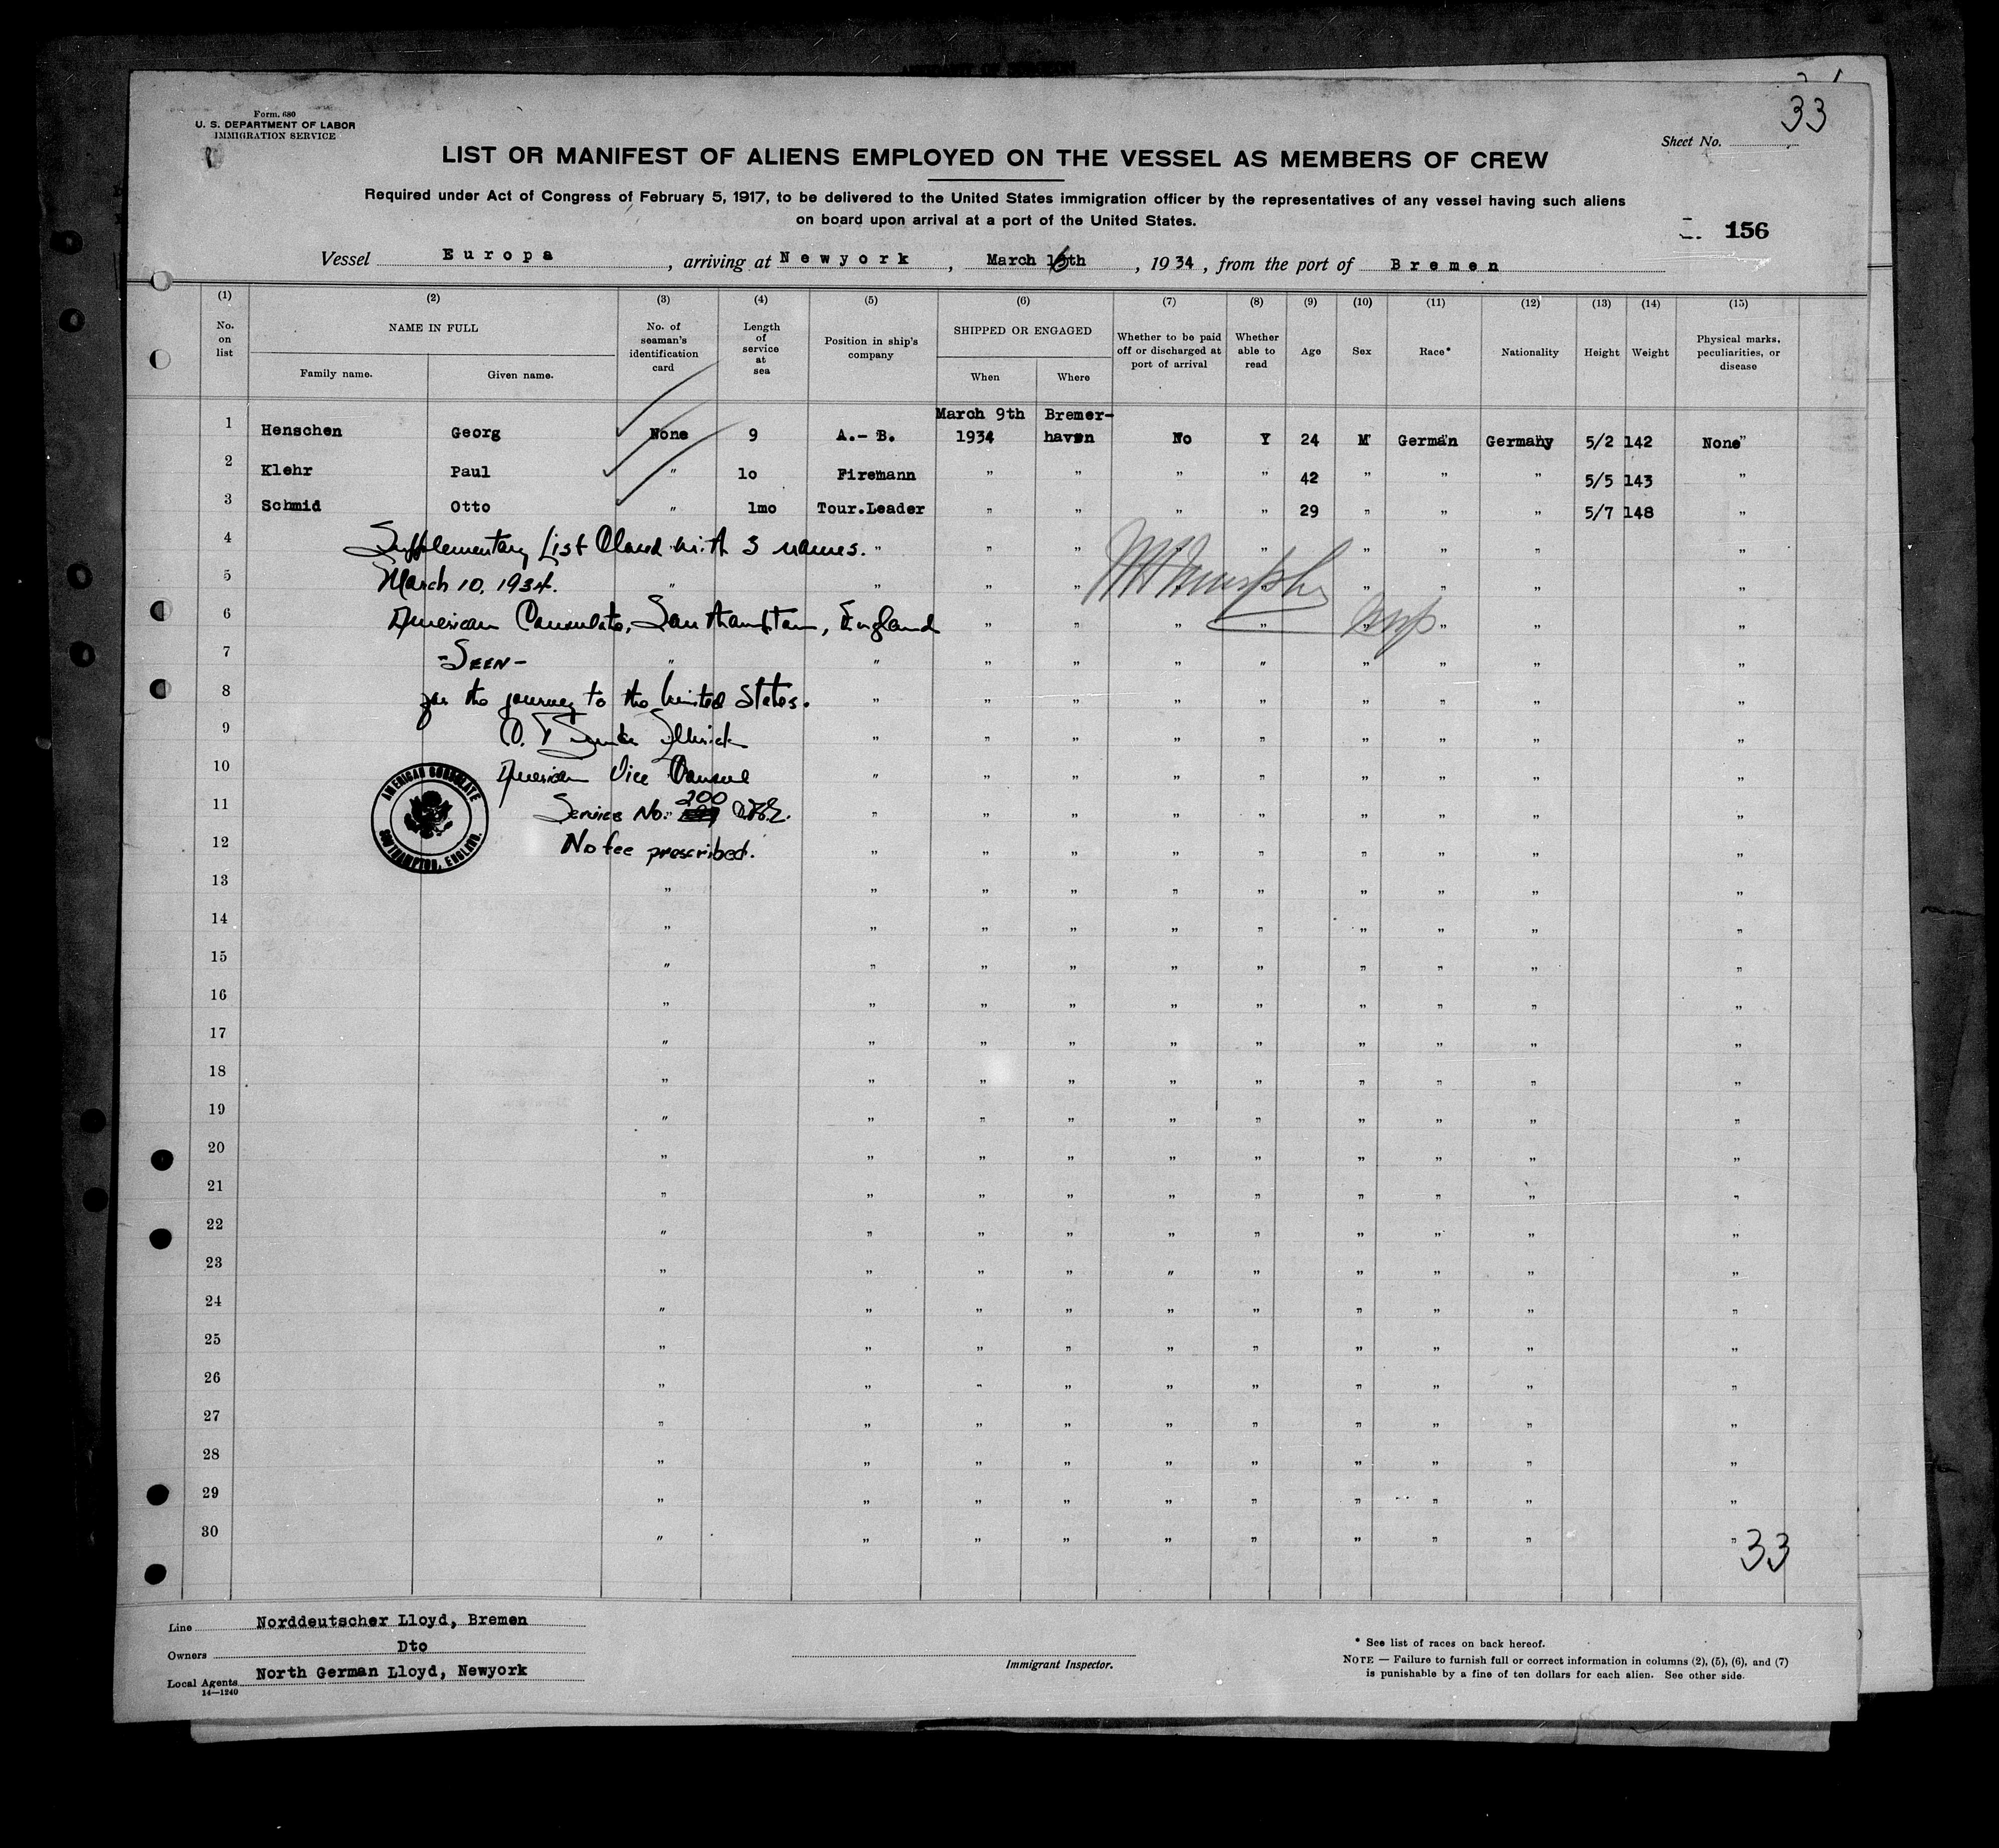 33
Form. 680
U. S. DEPARTMENT OF LABOR
IMMIGRATION SERVICE
Sheet No.
LIST OR MANIFEST OF ALIENS EMPLOYED ON THE VESSEL AS MEMBERS OF CREW
Required under Act of Congress of February 5, 1917, to be delivered to the United States immigration officer by the representatives of any vessel having such aliens
on board upon arrival at a port of the United States.
156
Vessel Europa , arriving at Newyork , March 16th , 1934 , from the port of Bremen
(1) (2) (3) (4) (5) (6) (7) (8) (9) (10) (11) (12) (13) (14) (15)
No. on list NAME IN FULL Family name. Given name. No. of seaman's identification card Length of service at sea Position in ship's company SHIPPED OR ENGAGED When Where Whether to be paid off or discharged at port of arrival Whether able to read Age Sex Race* Nationality Height Weight Physical marks, peculiarities, or disease
1 Henschen Georg None 9 A.- B. March 9th 1934 Bremer-haven No Y 24 M German Germany 5/2 142 None"
2 Klehr Paul " 1o Firemann " " " " 42 " " " 5/5 143 "
3 Schmid Otto " 1mo Tour.Leader " " " " 29 " " " 5/7 148 "
4 Supplementary List Closed with 3 names. " " " " " " " " "
5 March 10, 1934. " " " " " " " "
W H Murphy
Insp
6 American Consulate, Southampton, England " " " " " " " "
7 -SEEN- " " " " " " " " " "
8 for the journey to the United States. " " " " " " " " "
9 " " " " " " " " "
10 American Vice Consul " " " " " " " " "
11 Service No. 200 " " " " " " " " "
12 No fee prescribed. " " " " " " " " "
AMERICAN CONSULATE
SOUTHAMPTON, ENGLAND.
13 " " " " " " " " " "
14 " " " " " " " " " "
15 " " " " " " " " " "
16 " " " " " " " " " "
17 " " " " " " " " " "
18 " " " " " " " " " "
19 " " " " " " " " " "
20 " " " " " " " " " "
21 " " " " " " " " " "
22 " " " " " " " " " "
23 " " " " " " " " " "
24 " " " " " " " " " "
25 " " " " " " " " " "
26 " " " " " " " " " "
27 " " " " " " " " " "
28 " " " " " " " " " "
29 " " " " " " " " " "
30 " " " " " " " " " "
33
Line Norddeutscher Lloyd, Bremen
Owners Dto
Local Agents North German Lloyd, Newyork
14—1240
Immigrant Inspector.
* See list of races on back hereof.
NOTE — Failure to furnish full or correct information in columns (2), (5), (6), and (7)
is punishable by a fine of ten dollars for each alien. See other side.